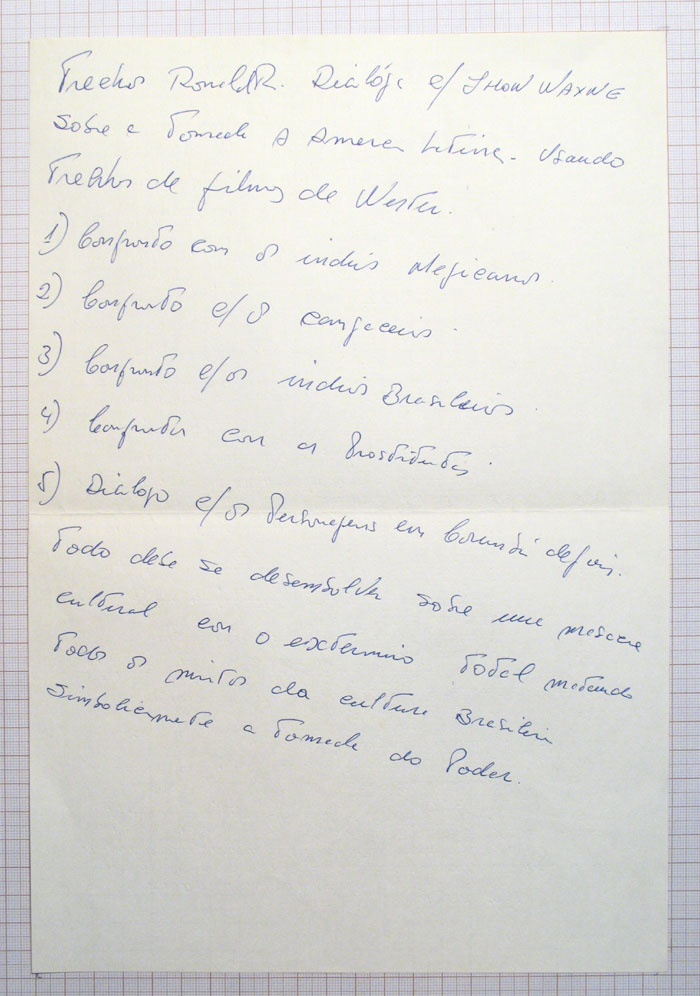 Trechos Ronald R. Dialógo c/ JHON WAYNE
sobre a Tomada A America Latina. Usando
Trechos de filmes de Wester.
1) Confronto com os indios Mexicanos.
2) Confronto c/ os cangaceiros.
3) Confronto c/ os indios Brasileiros.
4) Confrontos com as Prostitutas.
5) Dialogo c/ os Personagens em
Todo dese se desembolver sobre uma mascara
cultural com o exterminio Total matando
Todos os mitos da cultura Brasileira
Simbolicamente a Tomada do Poder.